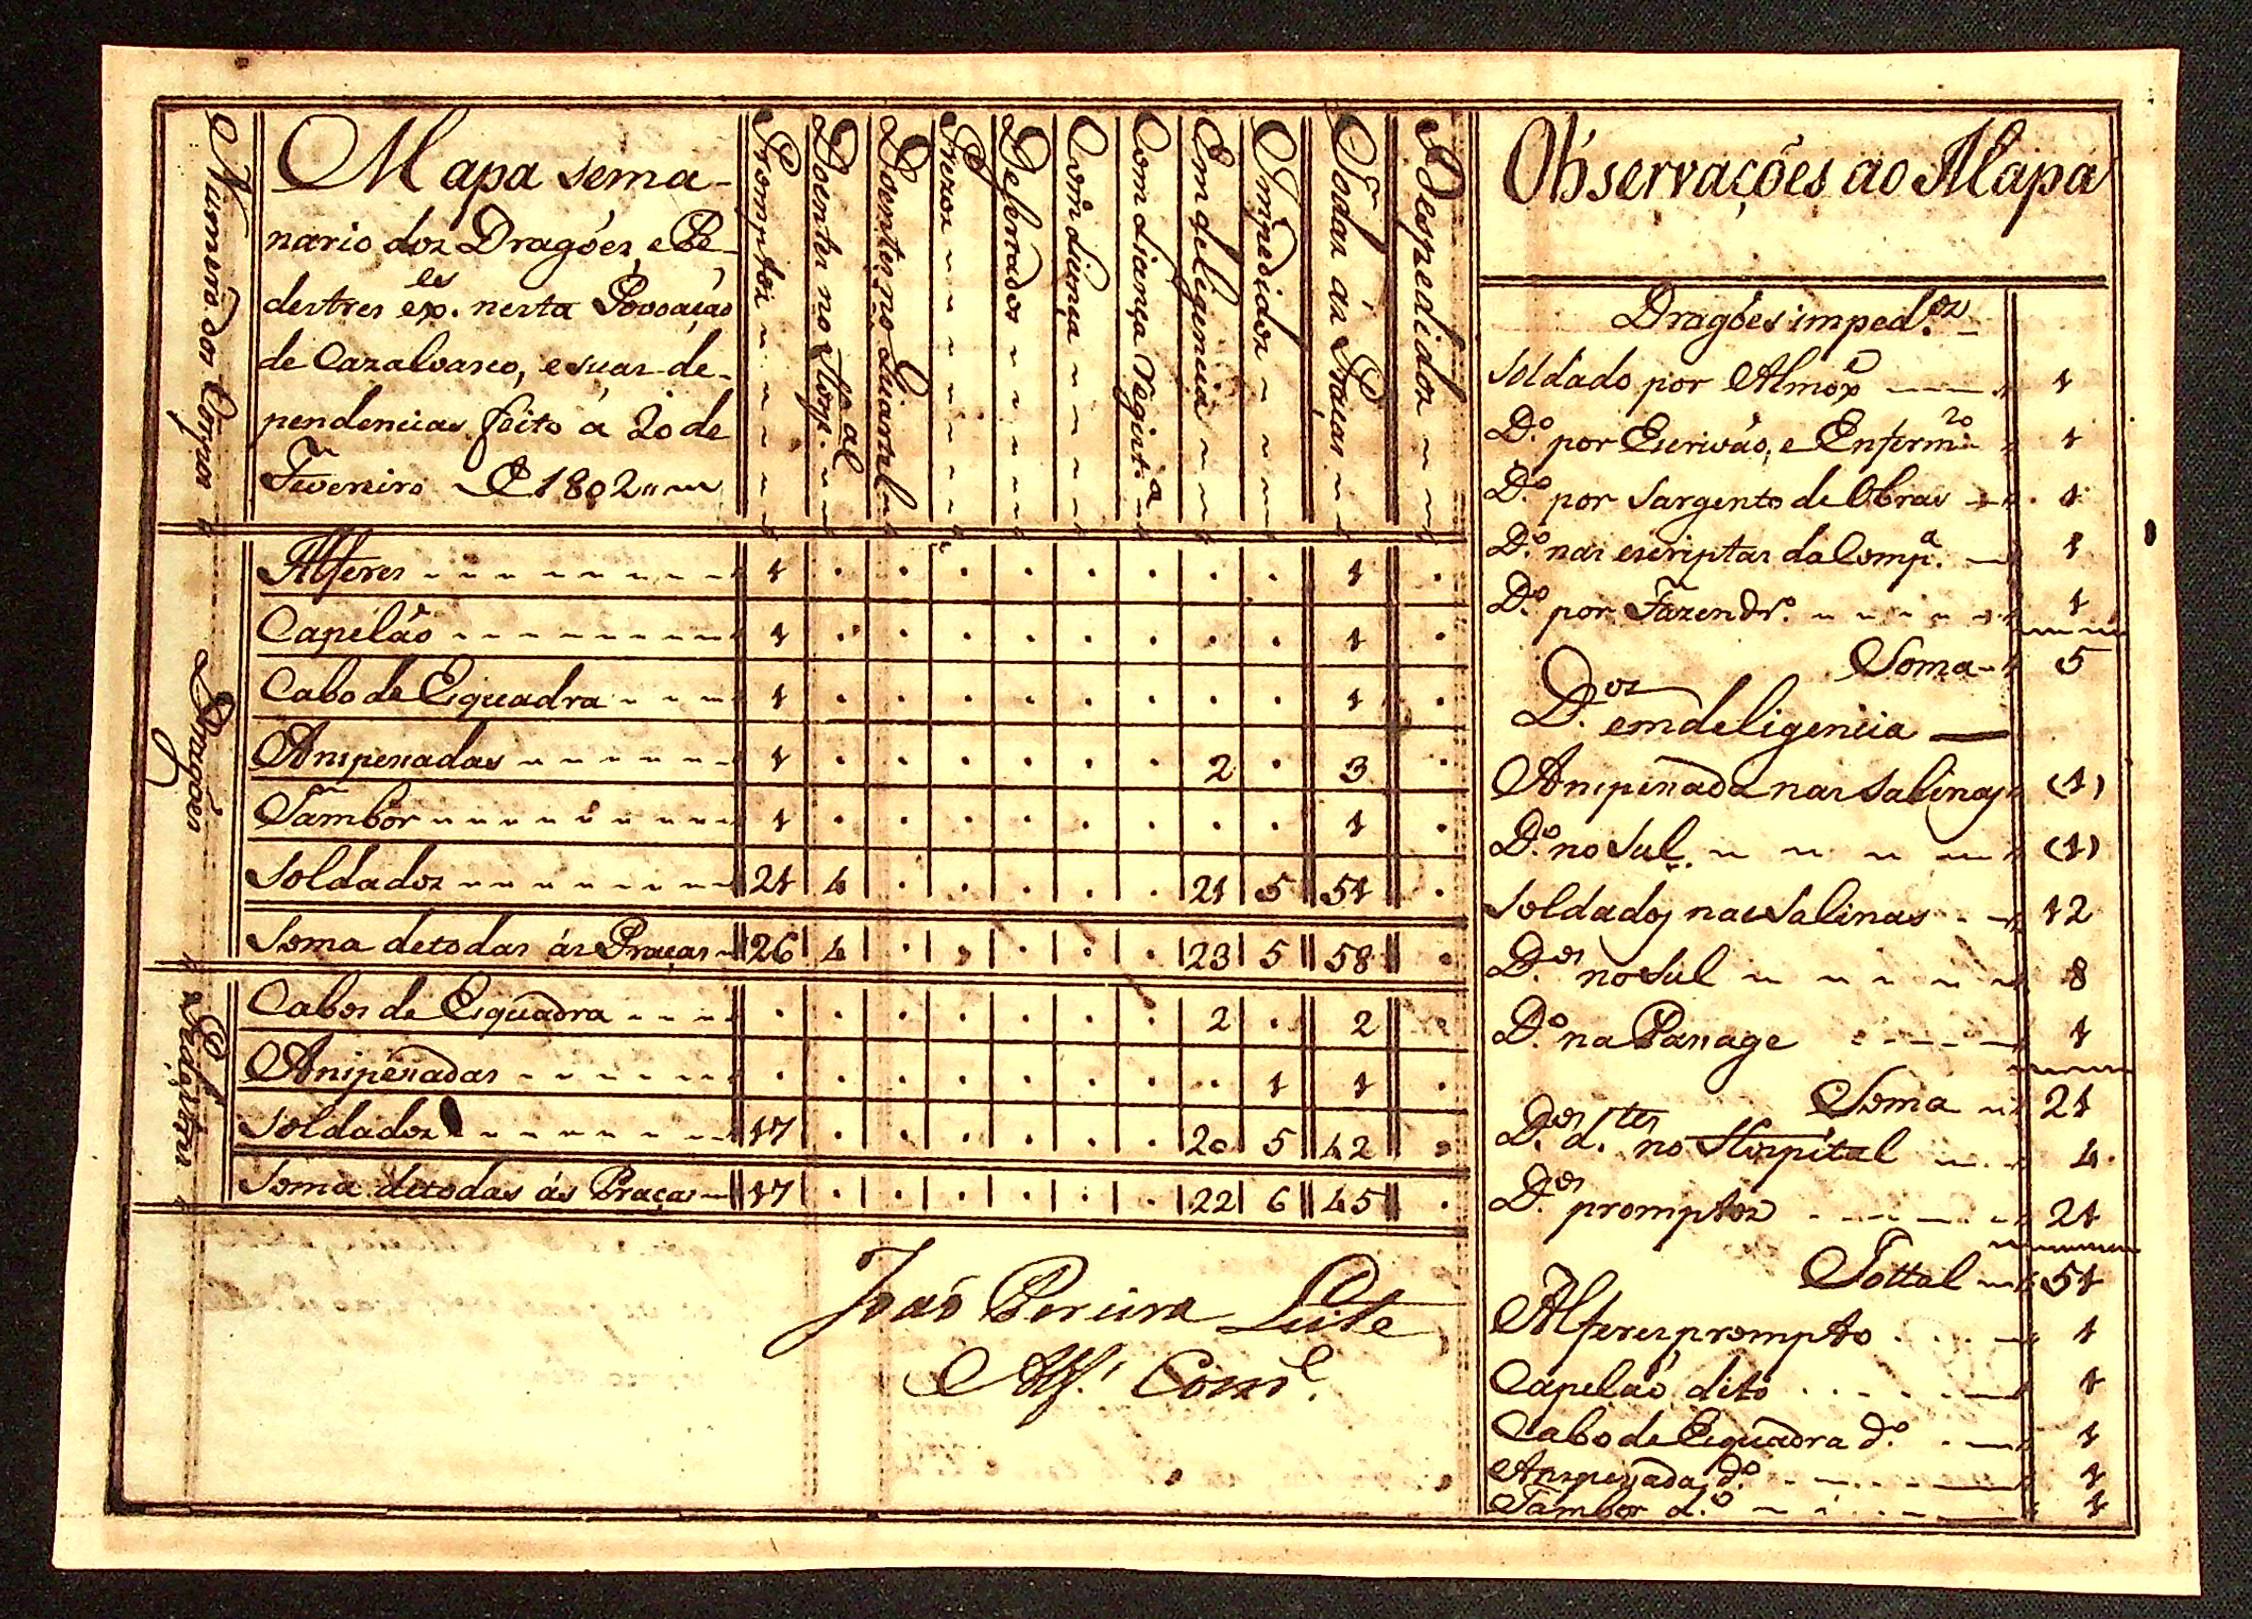 Numero dos Corpos
Mapa sema-
nario dos Dragões, e Pe-
destres exes. nesta Povoação
de Cazalvasco, e suas de-
pendencias feito á 20 de
Fevereiro de 1802
Promptos
Doentes no Hosp.al
Doentes no Quartel
Prezos
Dezertados
Com Licença
Com Licença Regista
Em deligencia
Impedidos
Todas ás Praças
Despedidos
Dragões
Alferes 1 . . . . . . . . 1 .
Capelão 1 . . . . . . . . 1 .
Cabo de Esquadra 1 . . . . . . . . 1 .
Anspesadas 1 . . . . . . 2 . 3 .
Tambor 1 . . . . . . . . 1 .
Soldados 21 4 . . . . . 21 5 51 .
Soma de todas ás Praças 26 4 . . . . . 23 5 58 .
Pedestres
Cabos de Esquadra . . . . . . . 2 . 2 .
Anspesadas . . . . . . . . 1 1 .
Soldados 17 . . . . . . 20 5 42 .
Soma de todas ás Praças 17 . . . . . . 22 6 45 .
João Pereira Leite
Alf. Come.
Observações ao Mapa
Dragões imped.os
Soldado por Almoxe 1
D.o por Escrivão, e Enferm.ro 1
D.o por Sargento de Obras 1
D.o nas escriptas da Comp.a 1
D.o por Fazendr.o 1
Soma 5
D.os em deligencia
Anspesada nas Salinas (1)
D.o no Sul (1)
Soldados nas Salinas 12
D.os no Sul 8
D.o na Passage 1
Soma 21
D.os d.tes no Hospital 4
D.os promptos 21
Tottal 51
Alferes prompto 1
Capelão dito 1
Cabo de Esquadra d.o 1
Anspesada d.o 1
Tambor d.o 1